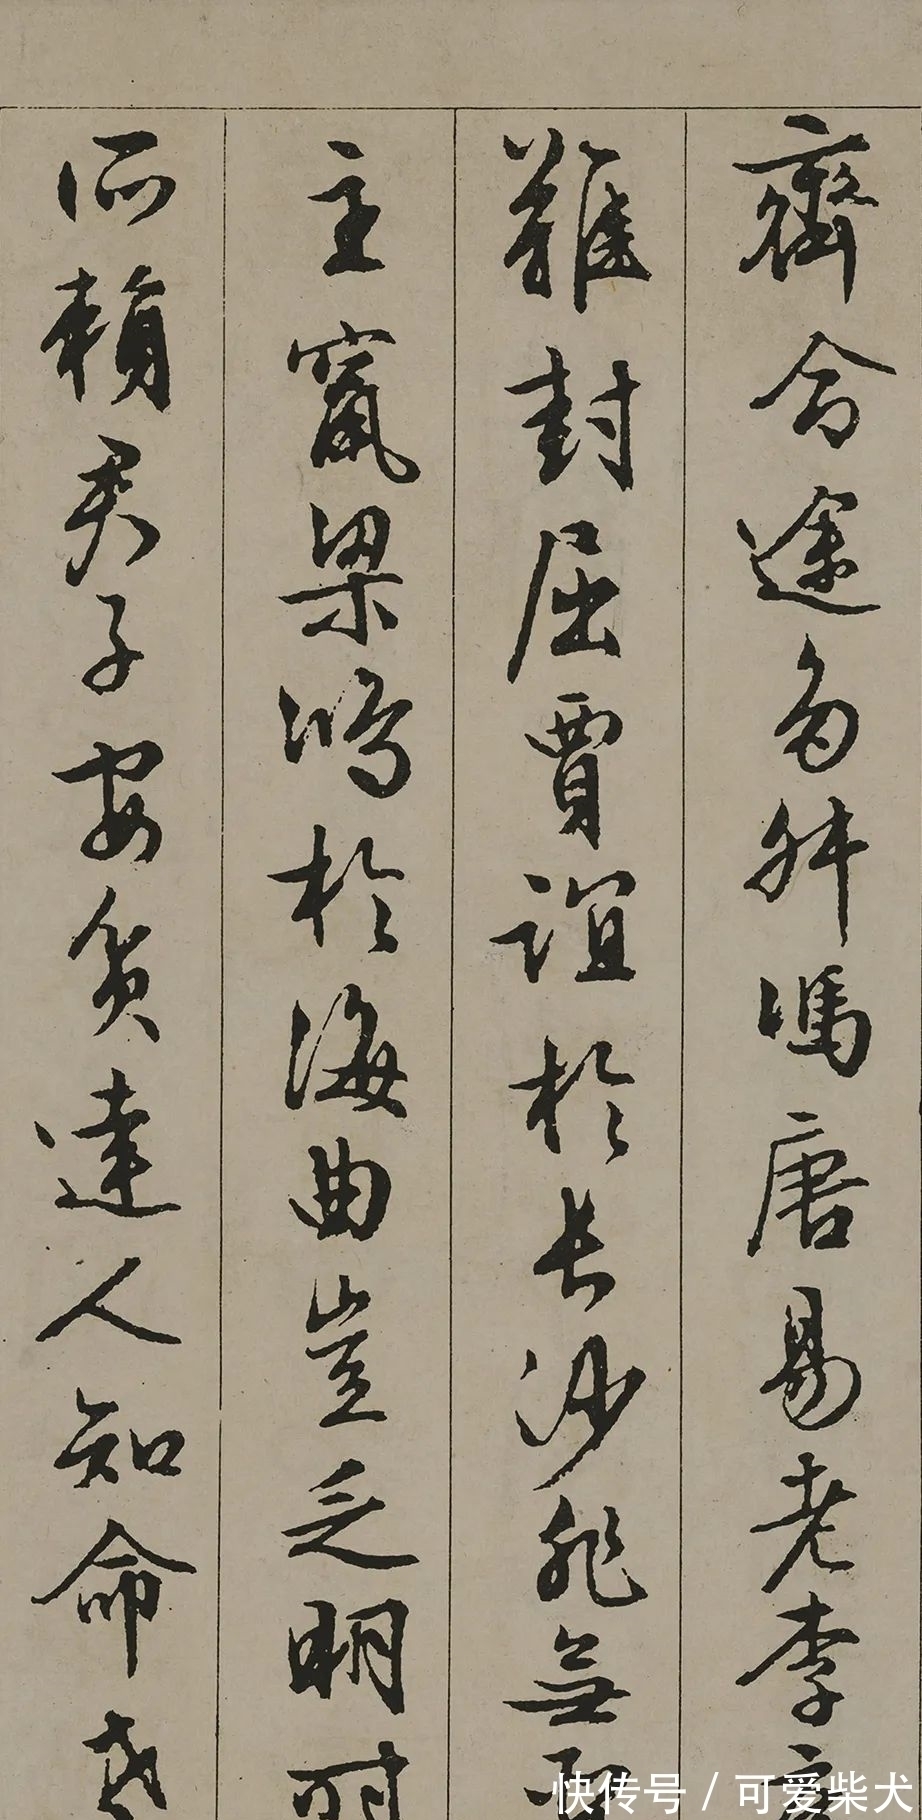 齊命途多舛馮唐易老李
難封屈賈誼於長沙非無
主竄梁鴻於海曲豈乏明時
所賴君子安貧達人知命老
快传号 / 可爱柴犬